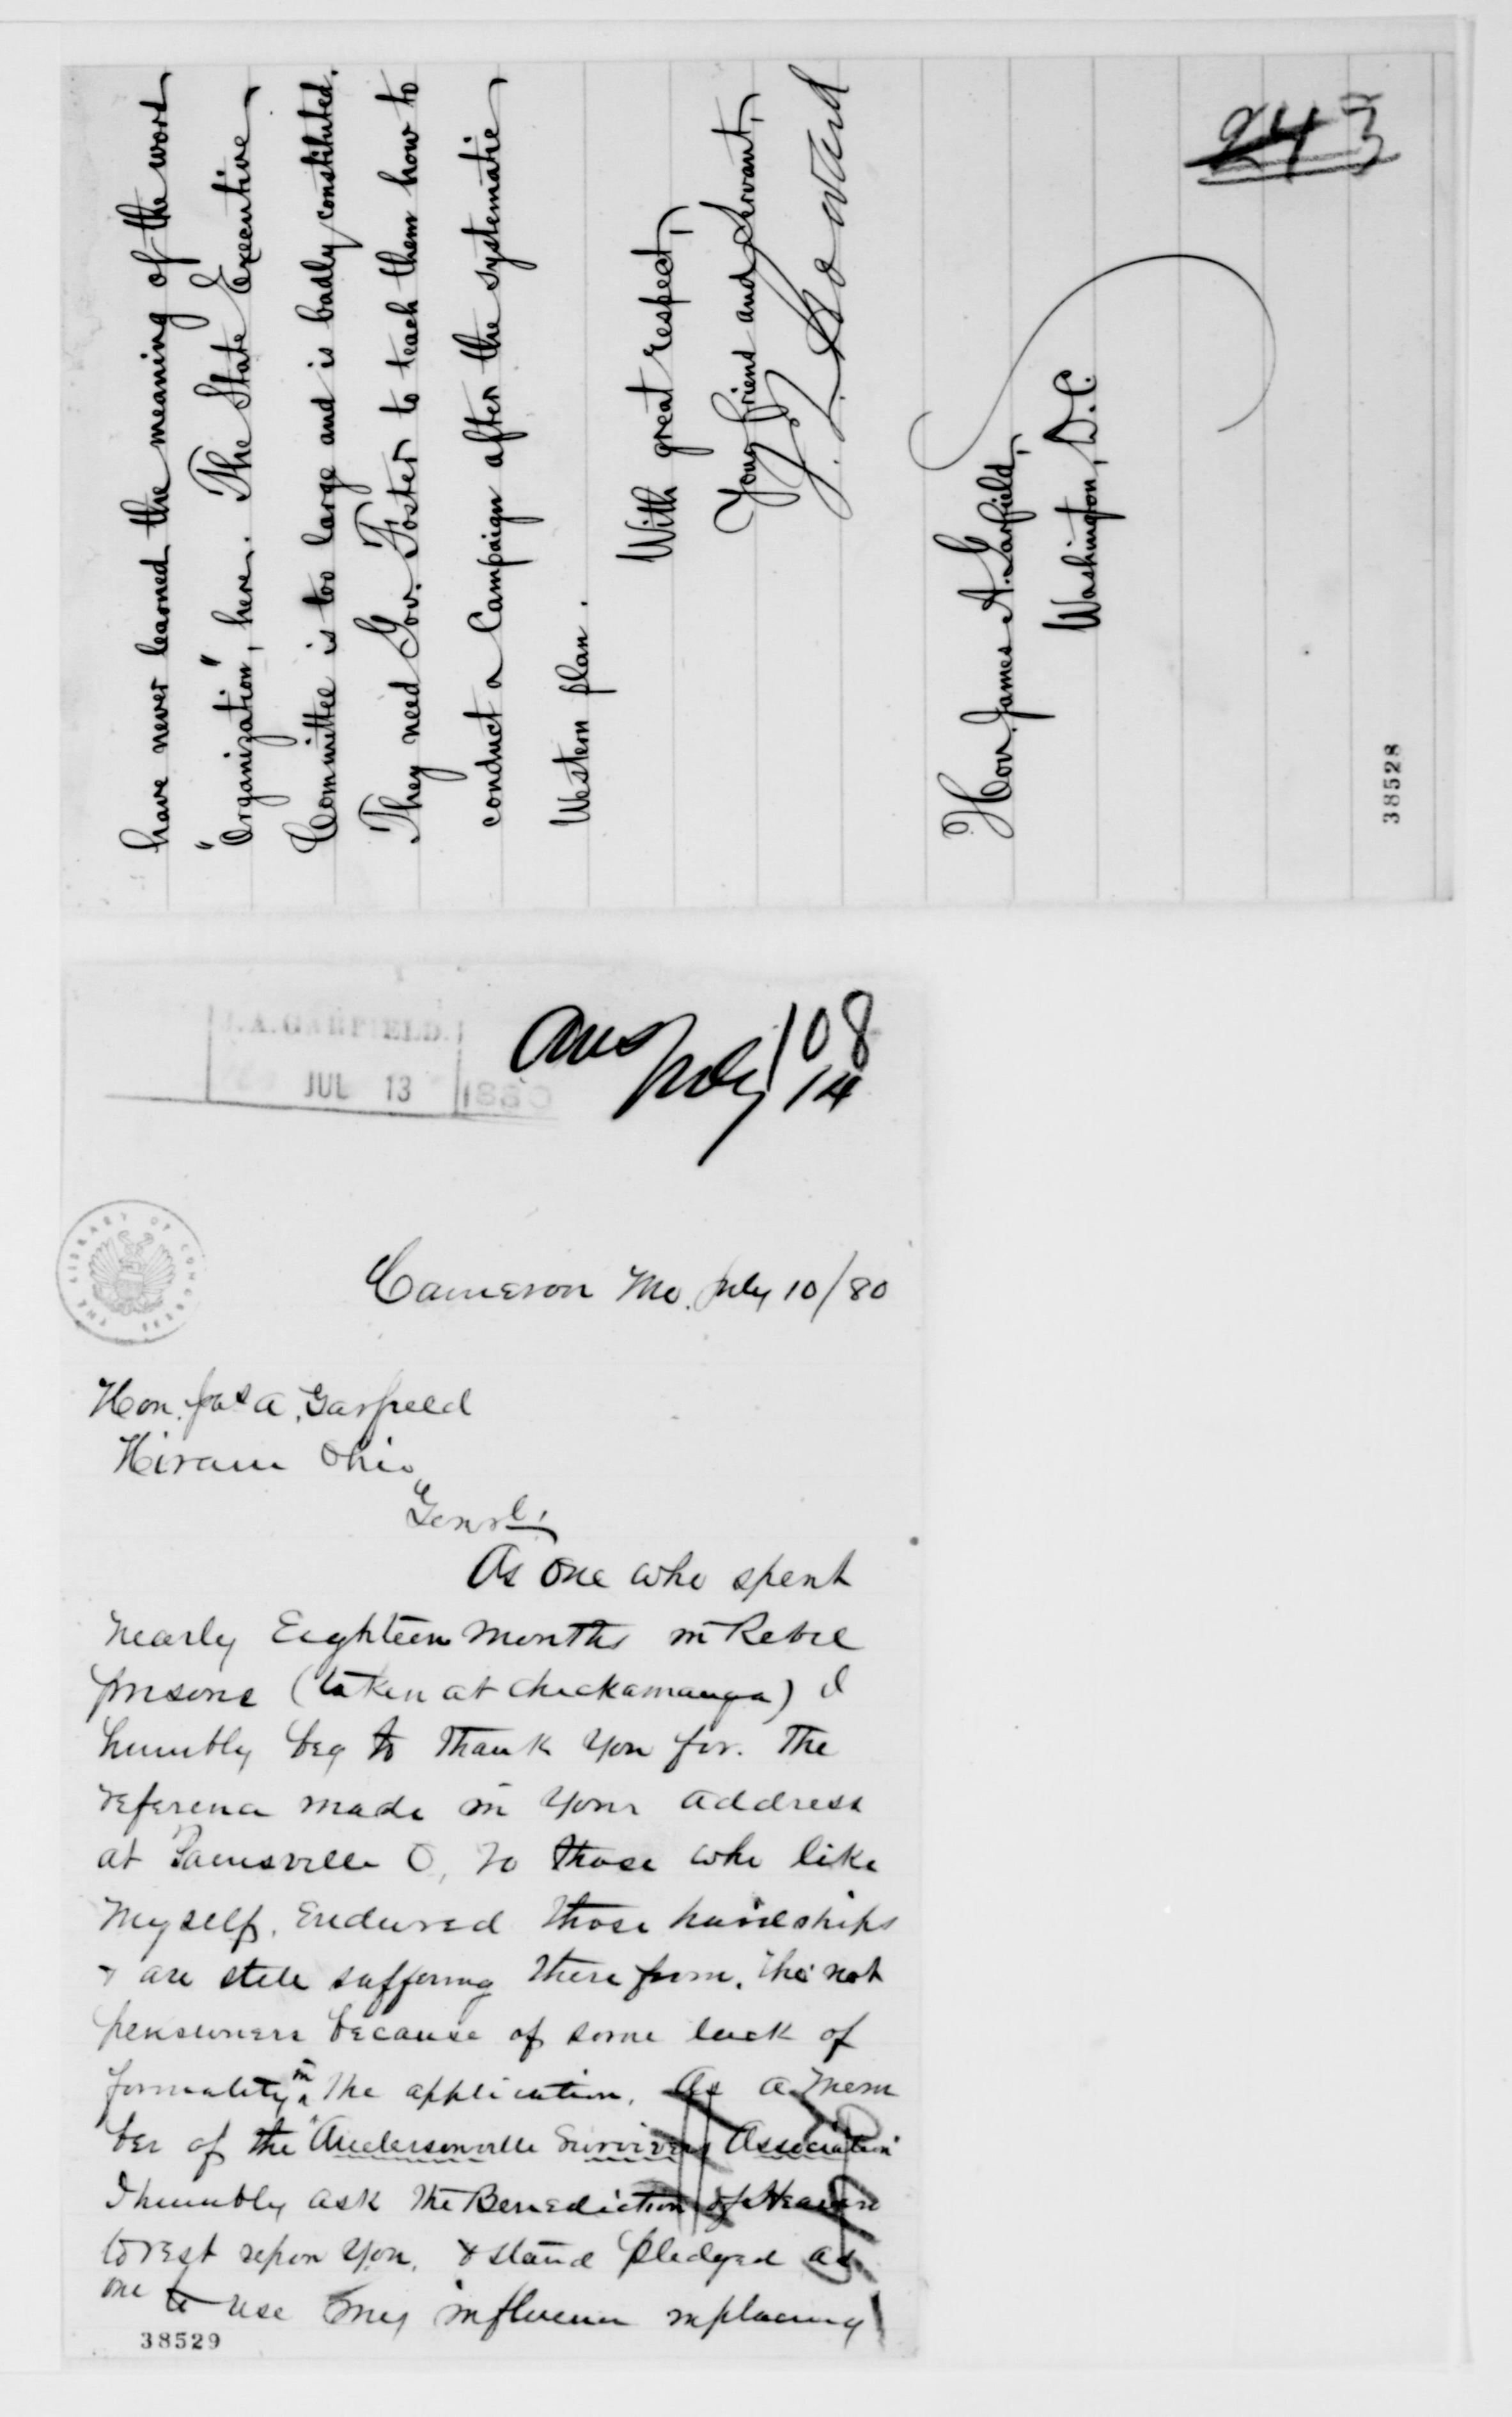 have never learned the meaning of the word
"Organization", here. The State Executive
Committee is too large and is badly constituted.
They need Gov. Foster to teach them how to
conduct a Campaign after the systematic
Western plan.
With great respect,
Your friend and servant,
J. L. Howard
Hon. James A. Garfield,
Washington, D.C.
243
38528
J.A. GARFIELD.
JUL 13 1880
Ans 108
July 14
THE LIBRARY OF CONGRESS
Cameron Mo. July 10/80
Hon. Jas A. Garfield
Hiram Ohio
Genrl.
As one who spent
nearly Eighteen months in Rebel
prisons (taken at Chickamauga) I
humbly beg to thank you for the
reference made in your address
at Painsville O, to those who like
myself, Endured those hardships
& are still suffering there from. tho not
pensioners because of some lack of
formality in the application. As a mem
ber of the "Andersonville Survivors Association"
I humbly ask the Benediction of Heaven
to rest upon you, & stand pledged as
one to use my influence in placing
38529